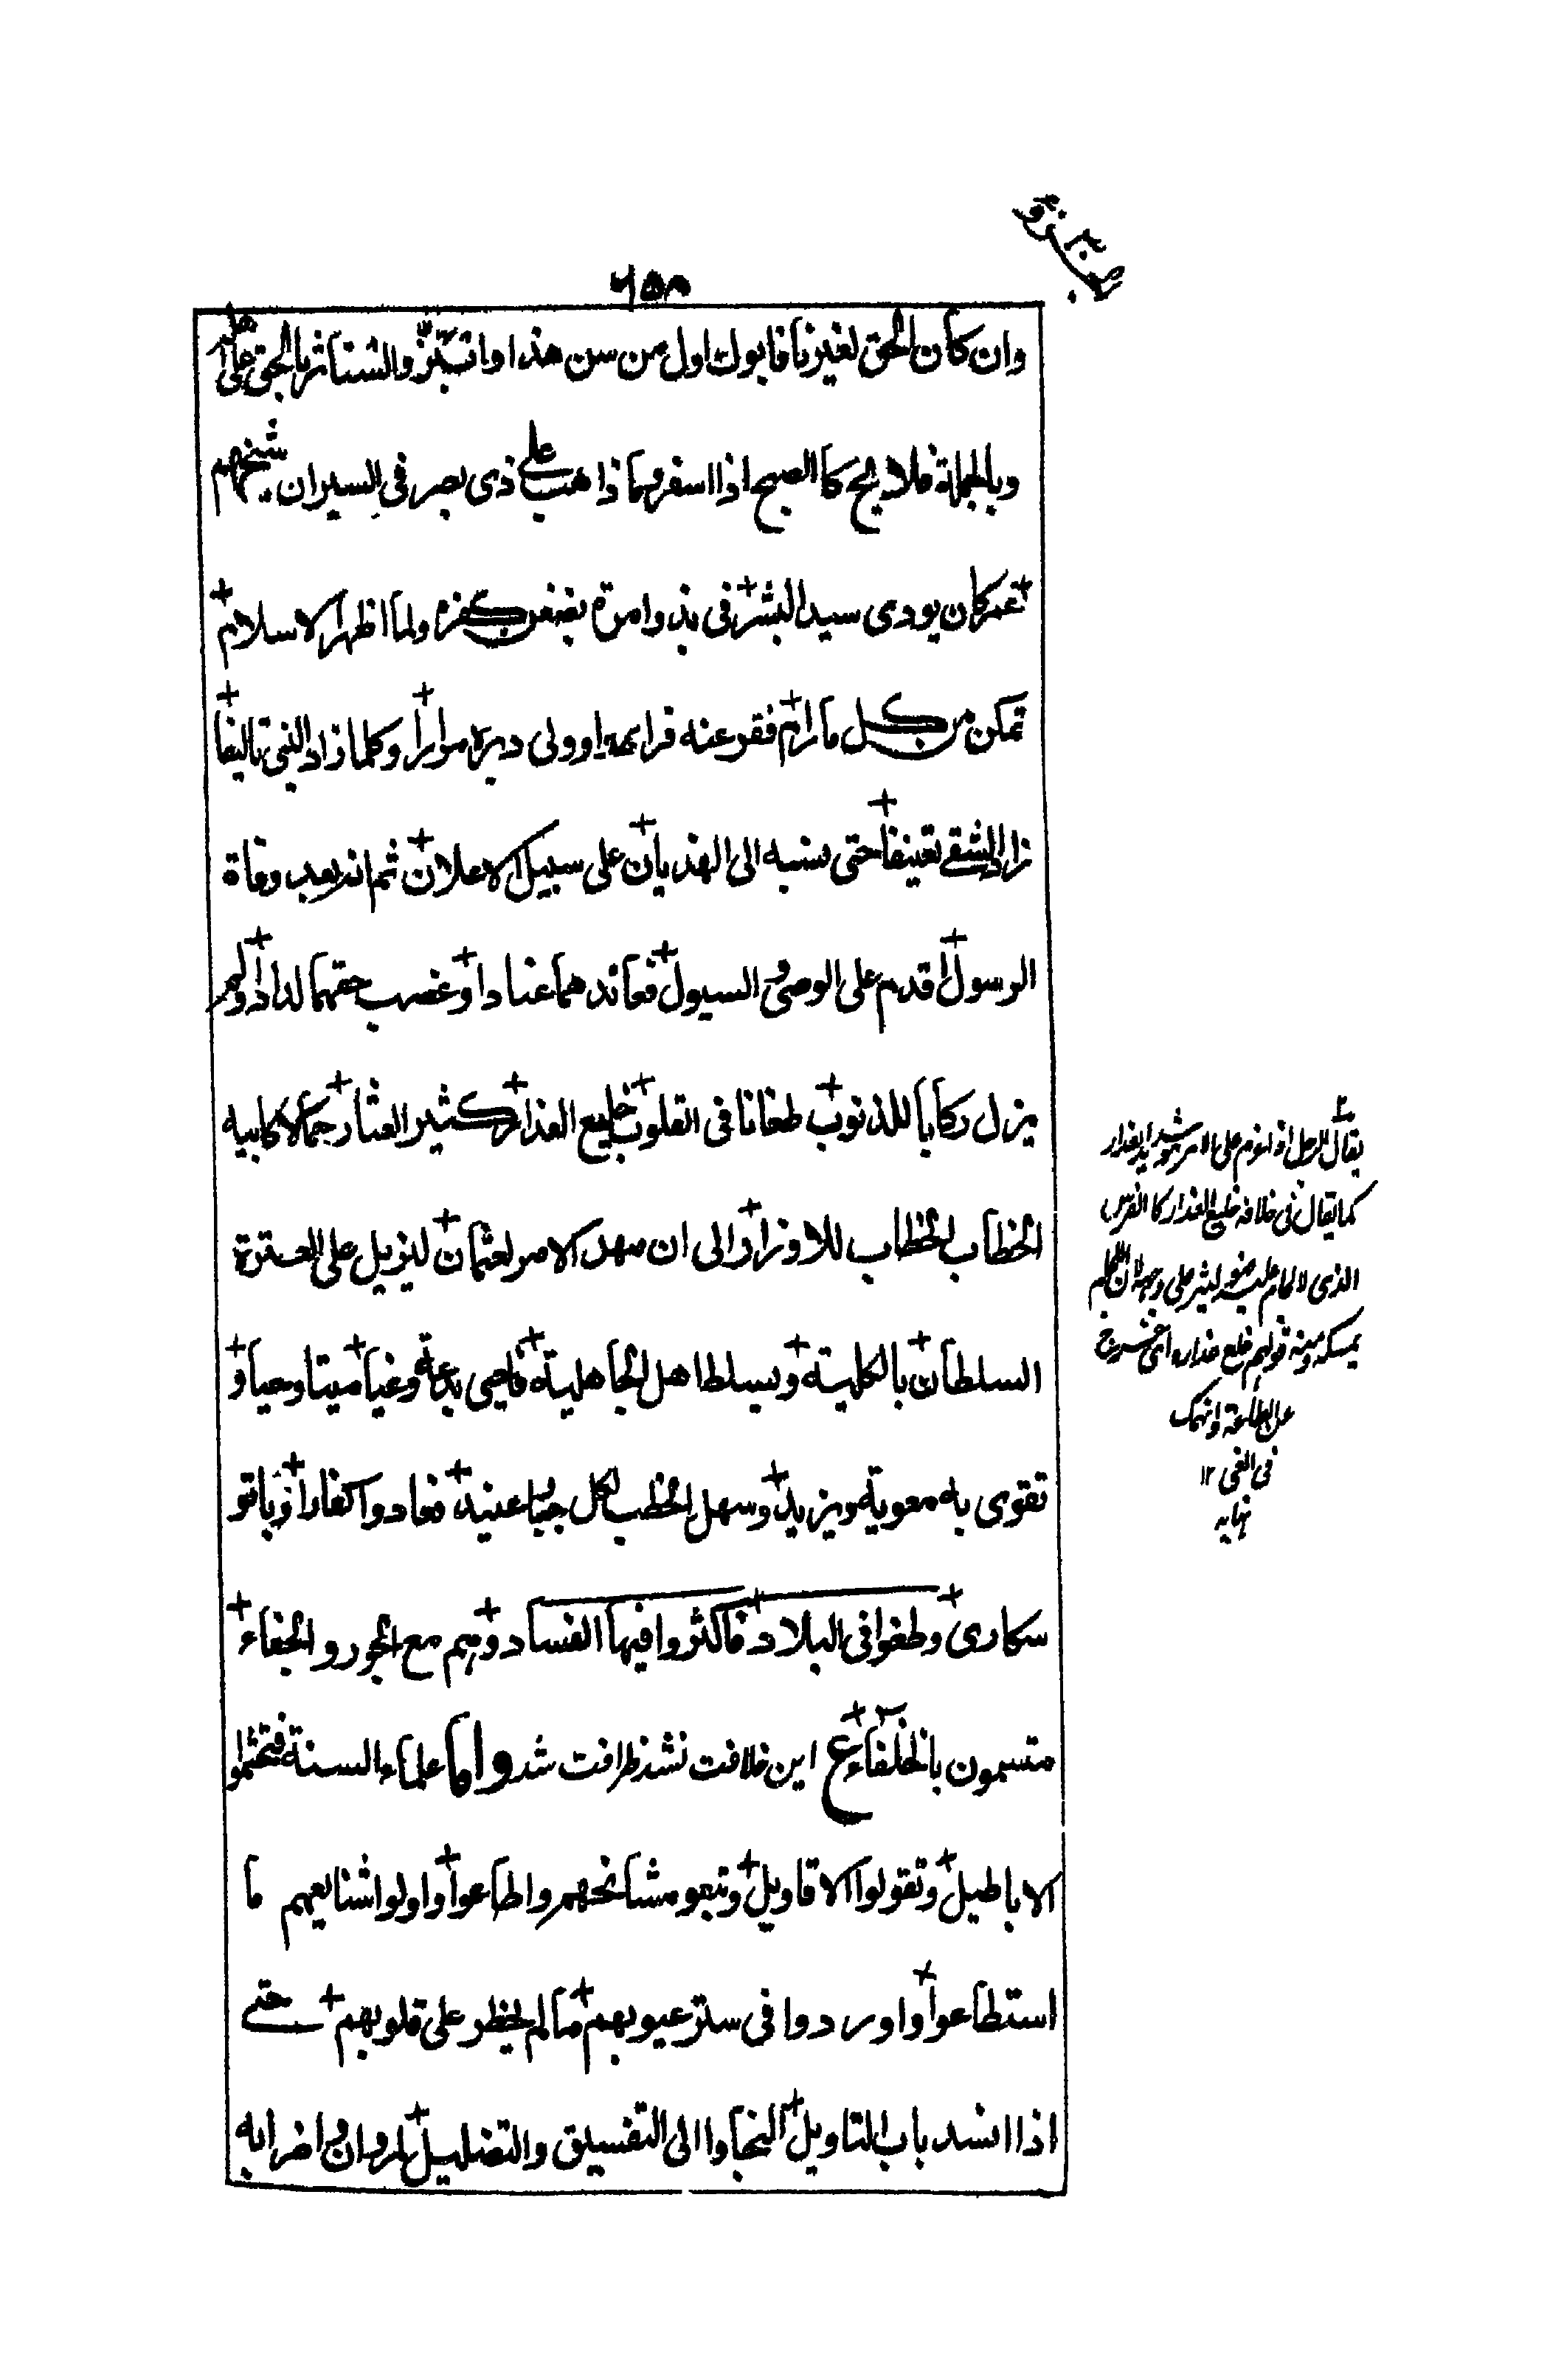 ٦٥٨
وان كان الحق لغيرنا فابوك اول من سن هذا وابتزّ واستاثر بالحق على اهله
وبالجملة فلايح كالصبح اذا اسفر مما ذاهب على ذى بصر فى السير ان شيخهم
عمر كان يوذى سيد البشر فى بدو امره بضفن كفره ولما اظهر الاسلام
تمكن من كل ما رام فقر عنه فرايصه او ولى دبره مرارا وكلما زاد النبى تاليفا
زاد الشقى تعنيفا حتى نسبه الى الهذيان على سبيل الاعلان ثم انه بعد وفاة
الرسول اقدم على الوصى و السيول فعاندهما عنادا وغصب حقهما لدادا ولم
يزل ركابا للذنوب طعانا فى القلوب خليع العذار كثير العثار حمالا كابيه
الخطاب لحظاب للاوزار الى ان مهد الامر لعثمان ليزيل على العترة
السلطان بالكلية وسلط اهل الجاهلية فاحيى بدعة وغيا ميتا وحيا و
تقوى به معوية ويزيد وسهل الخطب لكل جبار عنيد فعادوا كفارا وباتو
سكارى وطغوا فى البلاد فاكثروا فيها الفساد وهم مع الجور والجفاء
متسمون بالخلفاء ع اين خلافت نشد ظرافت شد واما علماء السنة فتحثموا
الاباطيل وتقولوا الاقاويل وتبعو مشائخهم واطاعوا واولوا شنايعهم ما
استطاعوا واوردوا فى ستر عيوبهم ما لم يخطر على قلوبهم حتى
اذا انسد باب التاويل التجاوا الى التفسيق والتضليل لمروان واضرابه
يقال للرجل اذا عزم على الامر هو شديد العذار
كما يقال فى خلافه خليع العذار كالفرس
الذى لا لجام عليه فهو يعثر على وجهه لان اللجام
يمسكه ومنه قولهم خلع عذاره اى خرج
عن الطاعة وانهمك
فى الغى ١٢
نهايه